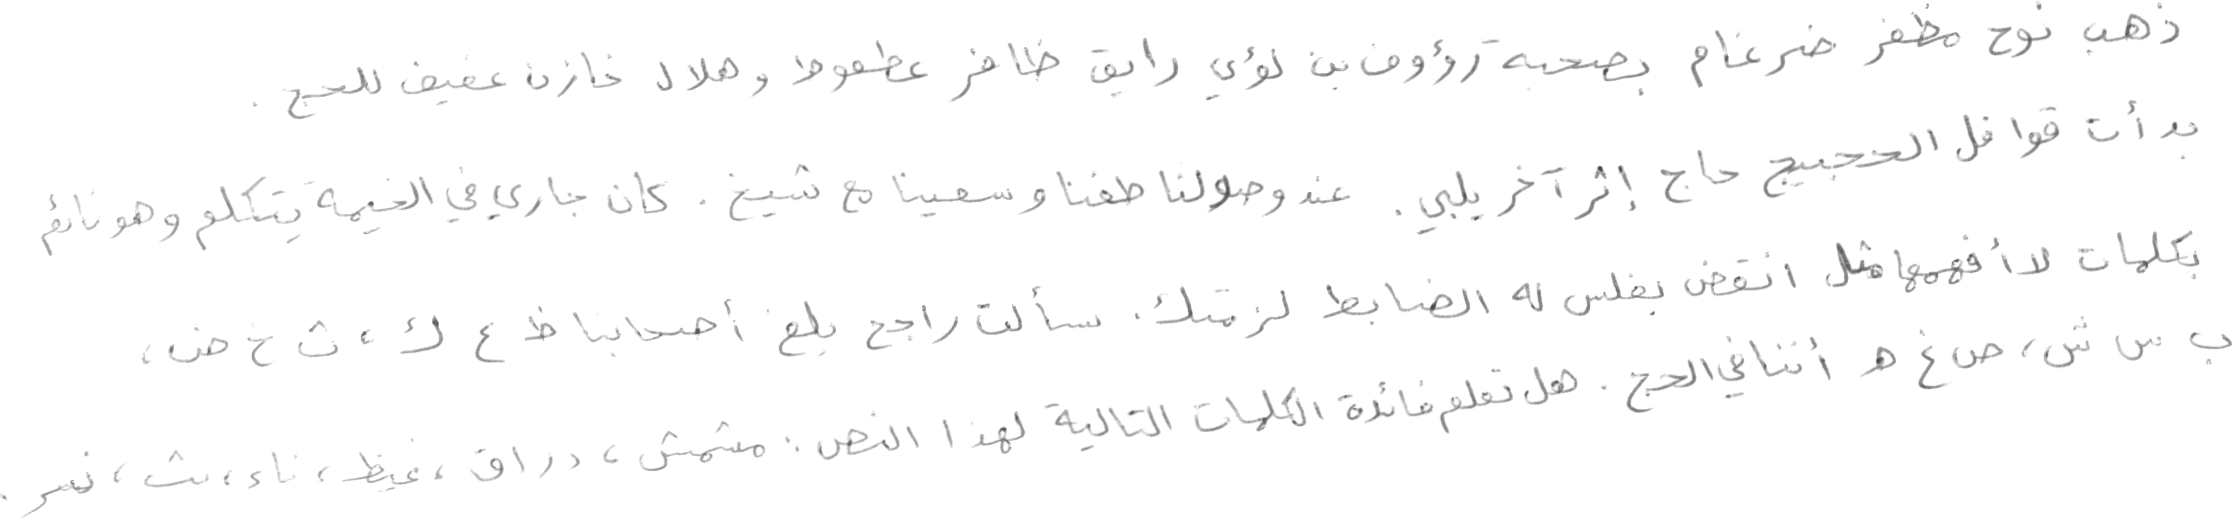 ذهب نوح مظفر ضرغام بصحبة رؤوف بن لؤي رايق ظافر عطعوط وهلال خازن عفيف للحج .
بدأت قوافل الحجيج حاج إثر آخر يلبي . عند وصولنا طفنا وسعينا مع شيخ . كان جاري في الخيمة يتكلم وهو نائم
بكلمات لا أفهمها مثل انقض بغلس له الضابط لزمتك . سألت راجح بلغ أصحابنا ظ ع ك ، ث خ ض ،
ب س ش ، ص غ ه أننا في الحج . هل تعلم فائدة الكلمات التالية لهذا النص : مشمش ، دراق ، غيظ ، ناء ، بث ، نسر .